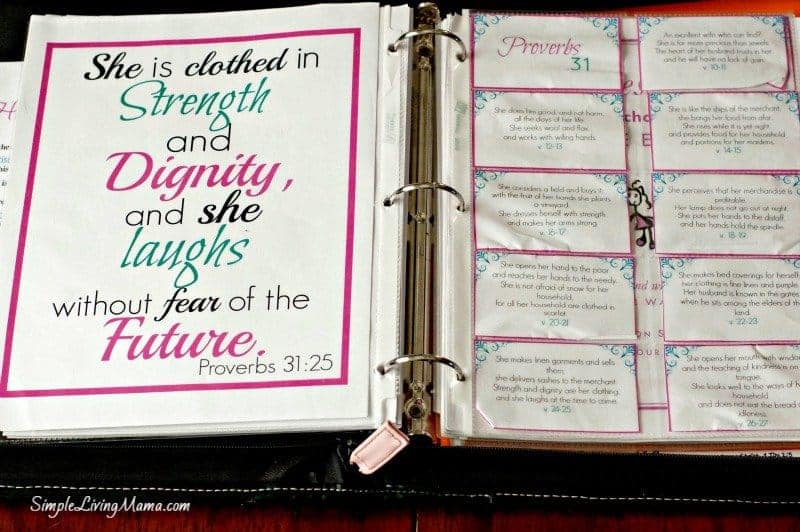 She is clothed in
Strength
and
Dignity,
and she
laughs
without fear of the
Future.
Proverbs 31:25
Proverbs
31
An excellent wife who can find?
She is far more precious than jewels.
The heart of her husband trusts in her,
and he will have no lack of gain.
v. 10-11
She does him good, and not harm,
all the days of her life.
She seeks wool and flax,
and works with willing hands.
v. 12-13
She is like the ships of the merchant,
she brings her food from afar.
She rises while it is yet night
and provides food for her household
and portions for her maidens.
v. 14-15
She considers a field and buys it;
with the fruit of her hands she plants
a vineyard.
She dresses herself with strength
and makes her arms strong.
v. 16-17
She perceives that her merchandise is
profitable.
Her lamp does not go out at night.
She puts her hands to the distaff,
and her hands hold the spindle.
v. 18-19
She opens her hand to the poor
and reaches her hands to the needy.
She is not afraid of snow for her
household,
for all her household are clothed in
scarlet.
v. 20-21
She makes bed coverings for herself;
her clothing is fine linen and purple.
Her husband is known in the gates
when he sits among the elders of the
land.
v. 22-23
She makes linen garments and sells
them;
she delivers sashes to the merchant.
Strength and dignity are her clothing,
and she laughs at the time to come.
v. 24-25
She opens her mouth with wisdom
and the teaching of kindness is on her
tongue.
She looks well to the ways of her
household
and does not eat the bread of
idleness.
v. 26-27
SimpleLivingMama.com